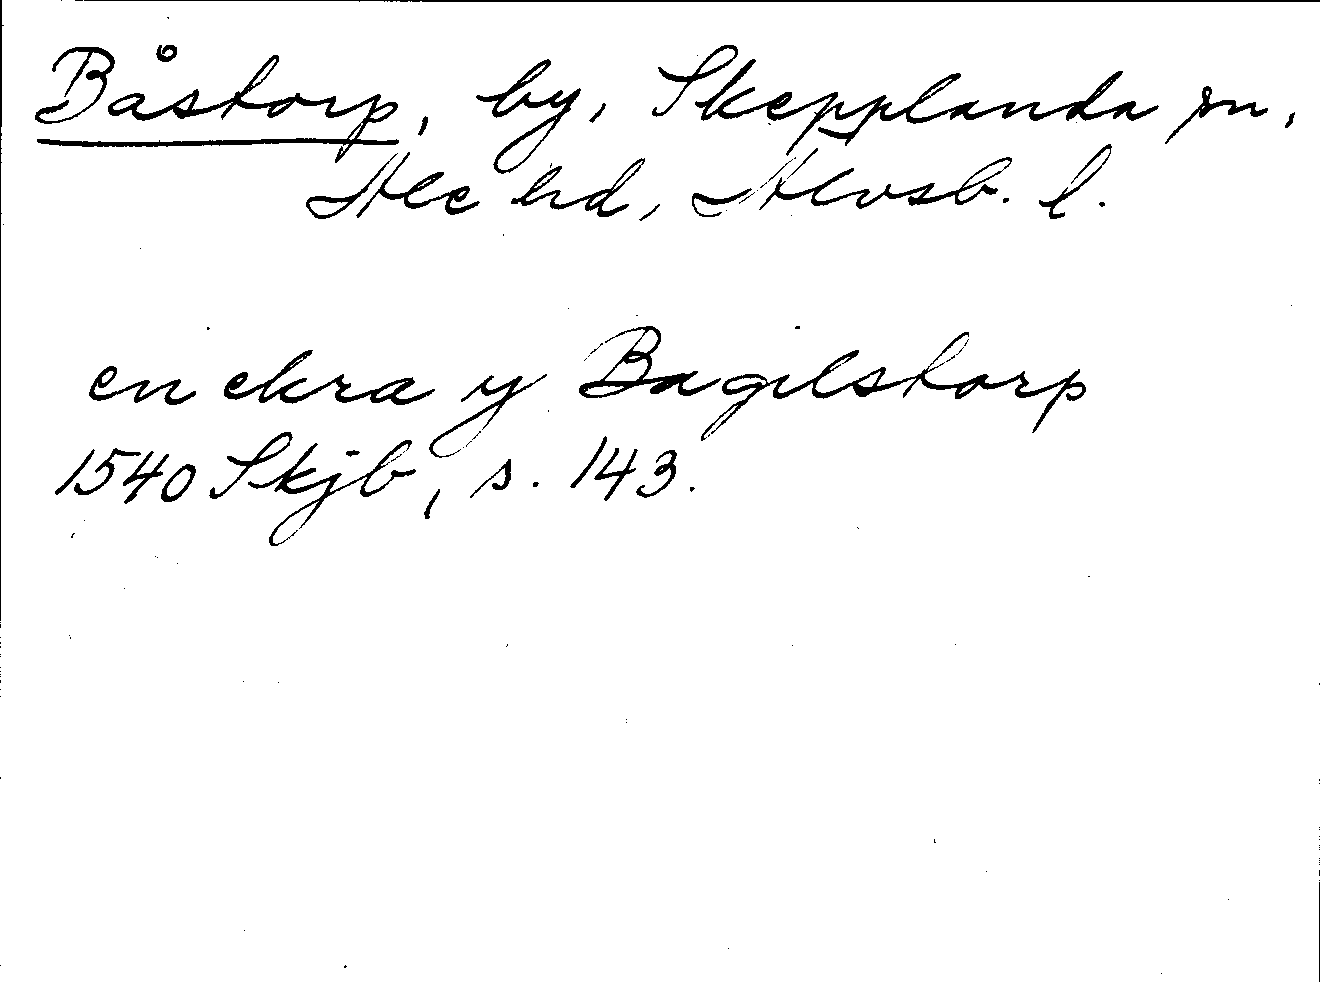 Båstorp, by, Skepplanda sn,
Ale hd, Älvsb. l.
en ekra y Bagelstorp
1540 Skjb, s. 143.